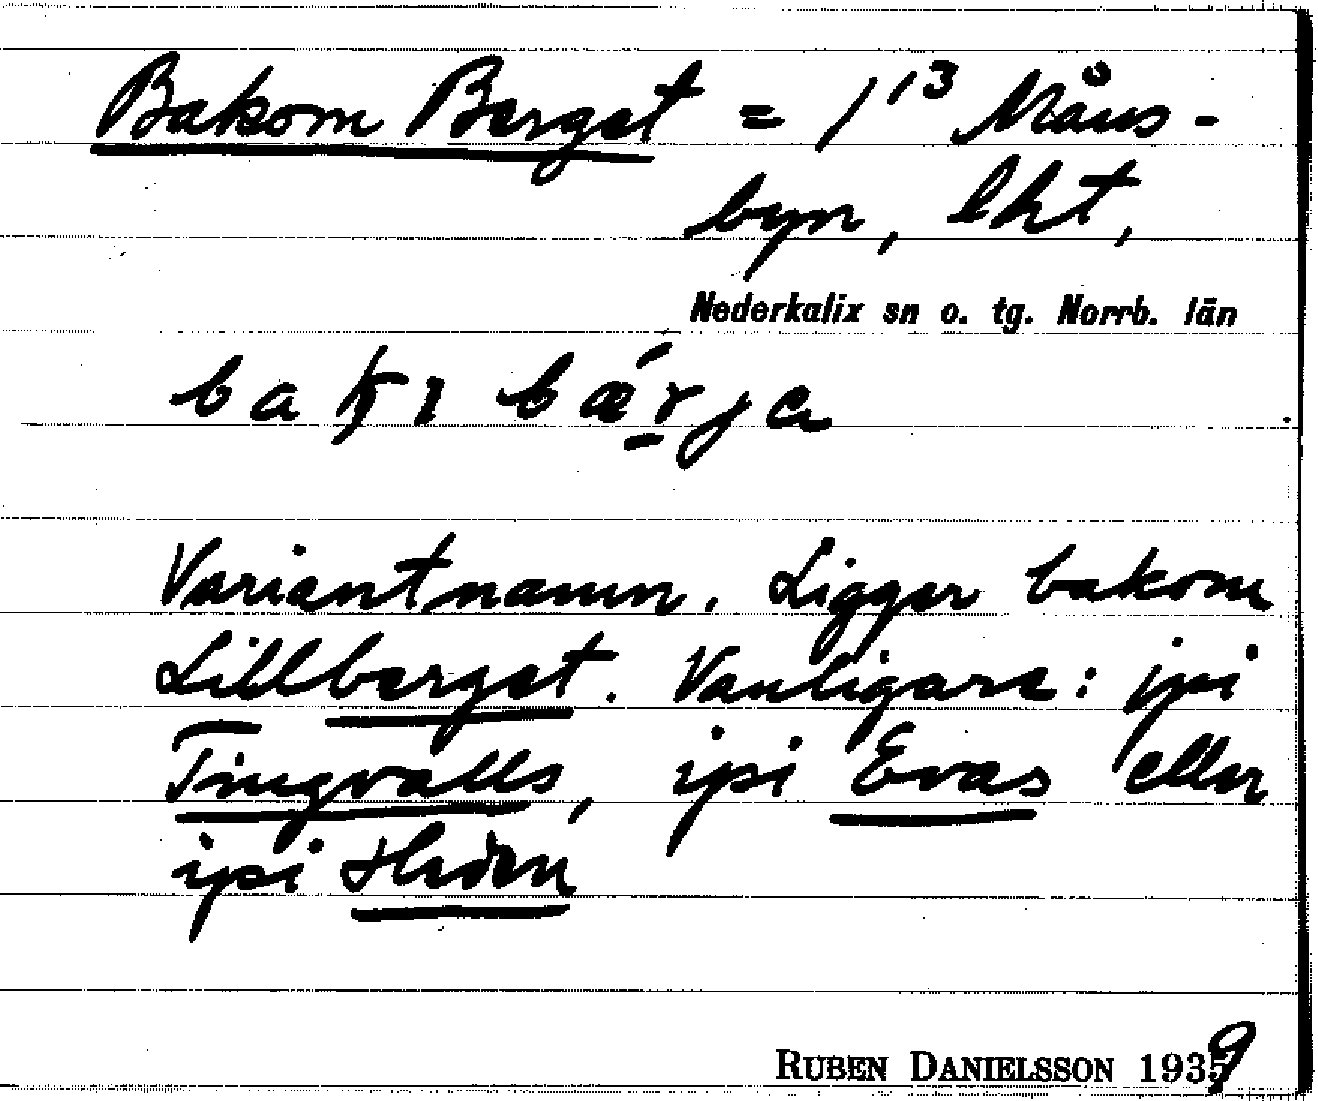 Bakom Berget = 1¹³ Måns-
byn, lht,
Nederkalix sn o. tg. Norrb. län
bakɪ bǽrja
Variantnamn. Ligger bakom
Lillberget. Vanligare: ipi
Tingvalls, ipi Evas eller
ipi Heden
RUBEN DANIELSSON 1939